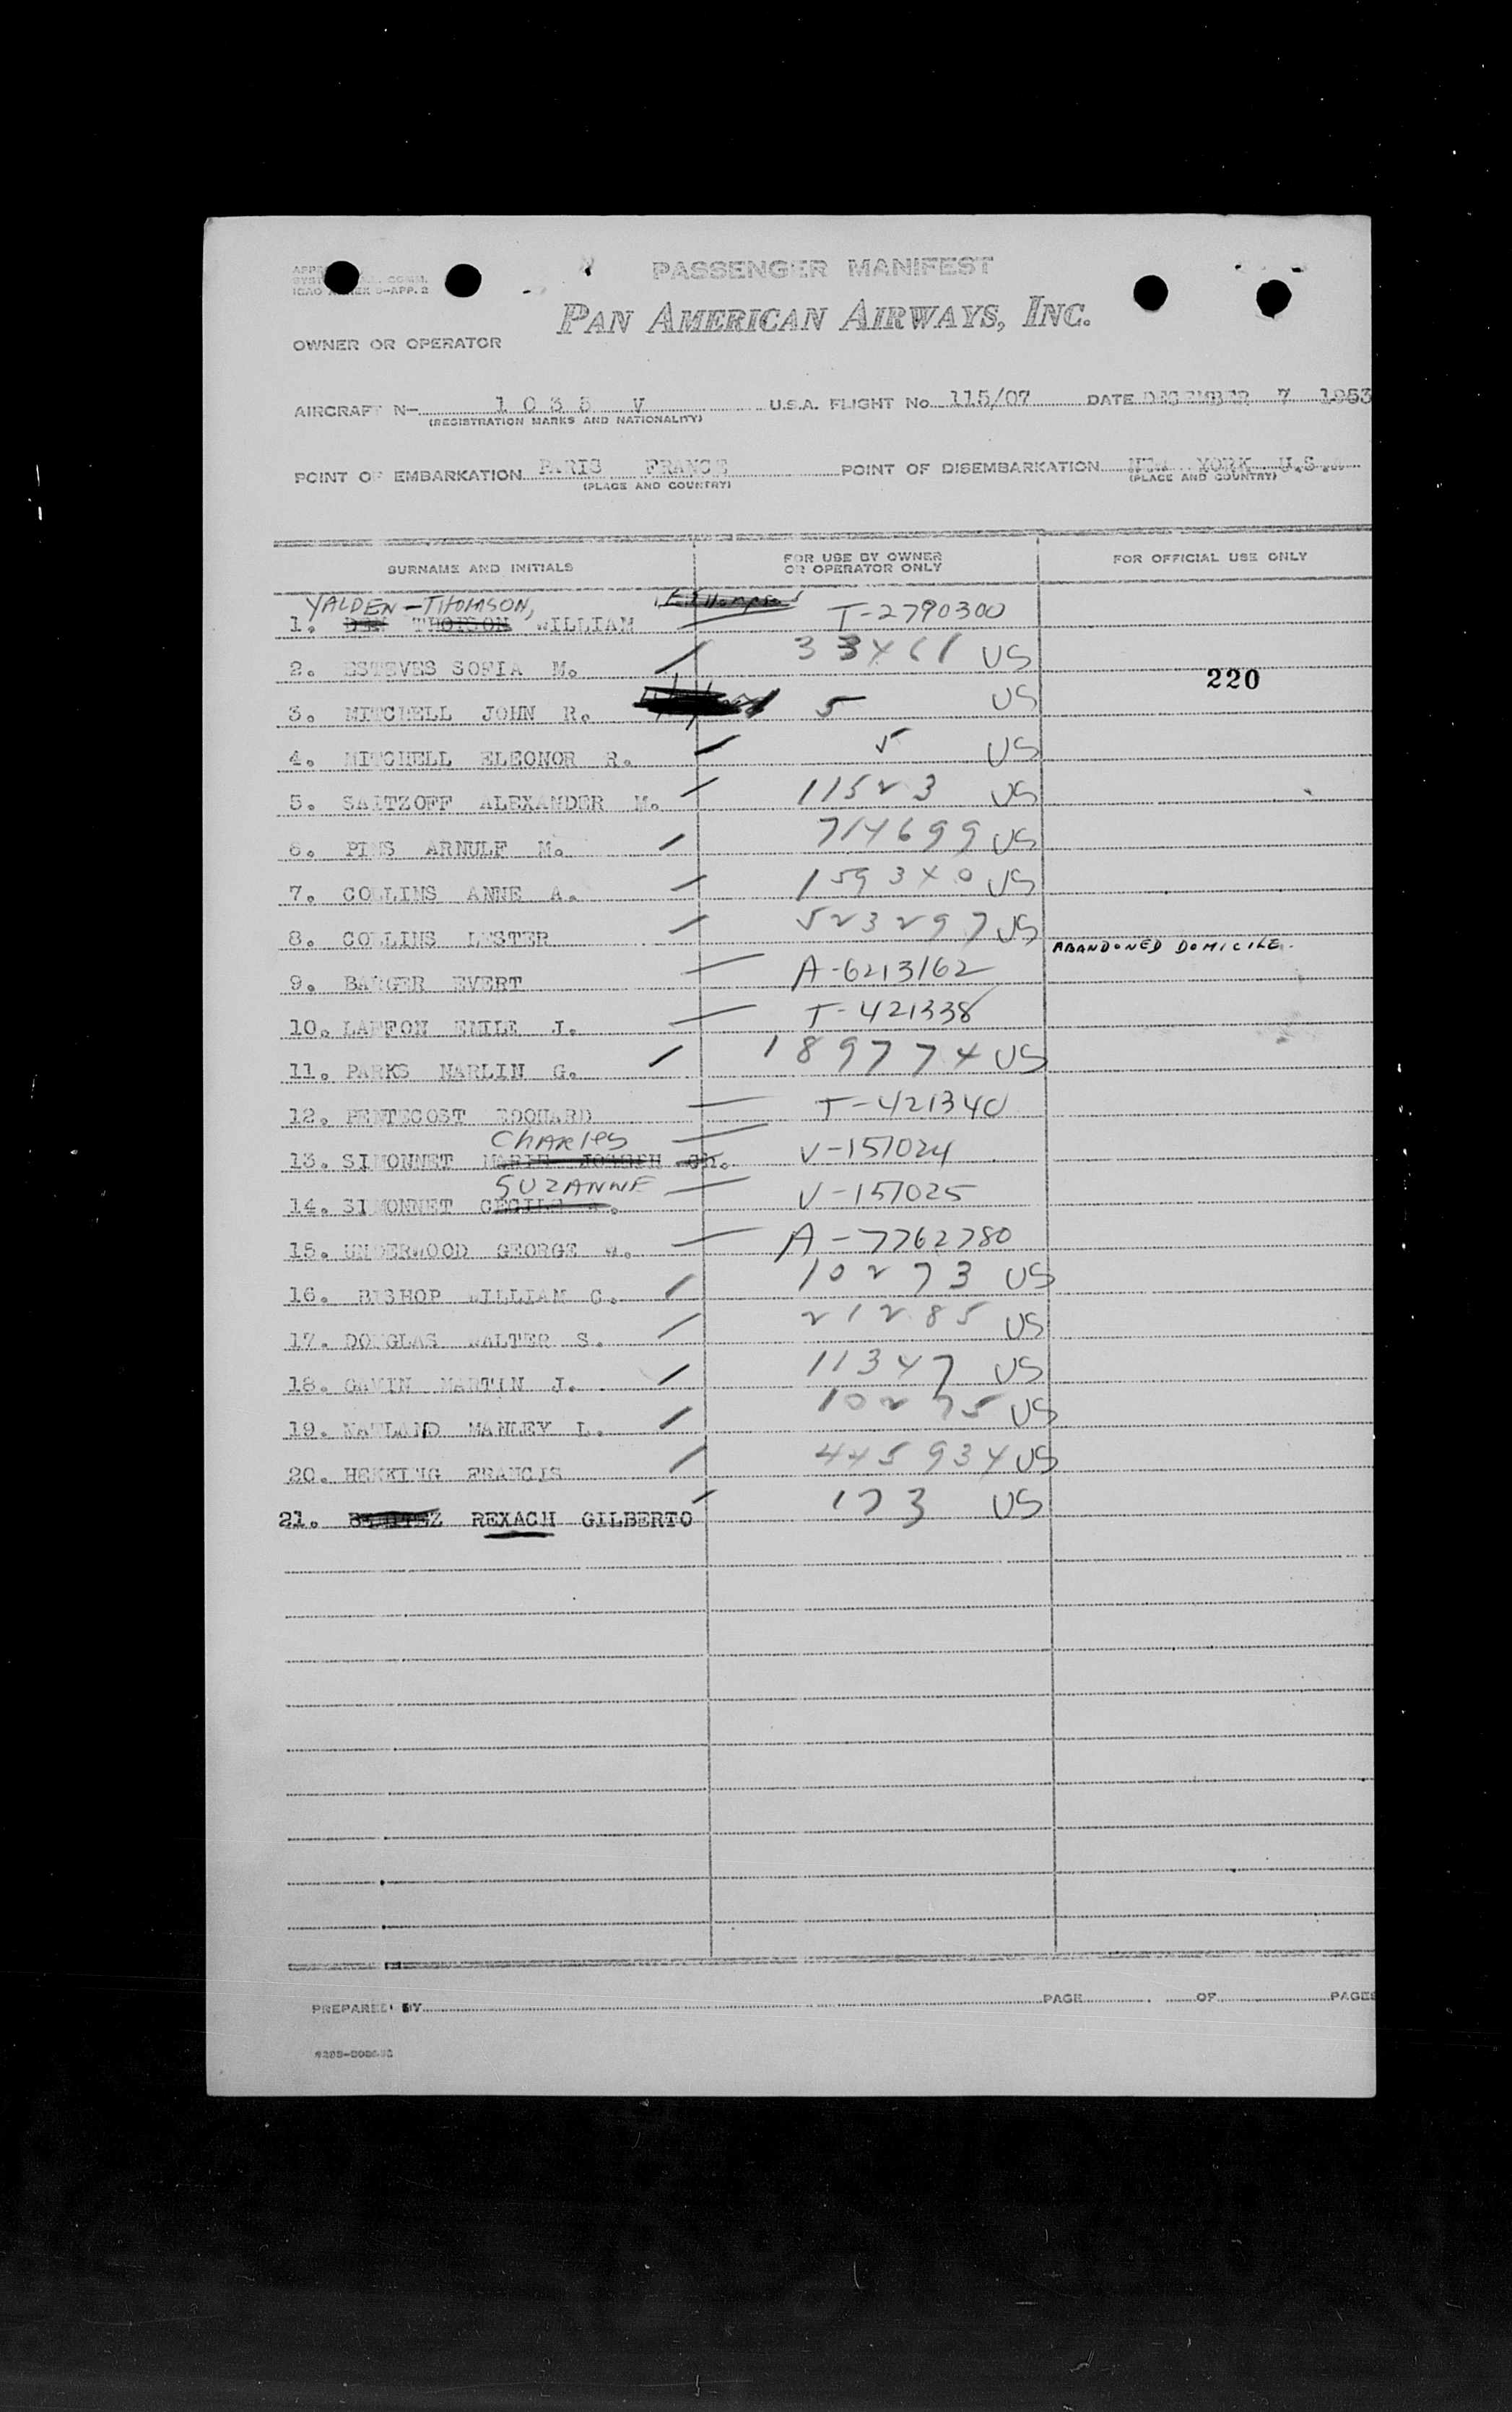 PASSENGER MANIFEST
ICAO ANNEX 9-APP. 2
PAN AMERICAN AIRWAYS, INC.
OWNER OR OPERATOR
AIRCRAFT N- 1 0 3 5 V U.S.A. FLIGHT No. 115/07 DATE DECEMBER 7 1953
(REGISTRATION MARKS AND NATIONALITY)
POINT OF EMBARKATION PARIS FRANCE POINT OF DISEMBARKATION NEW YORK U.S.A
(PLACE AND COUNTRY) (PLACE AND COUNTRY)
SURNAME AND INITIALS FOR USE BY OWNER OR OPERATOR ONLY FOR OFFICIAL USE ONLY
YALDEN-THOMSON,
1. WILLIAM T-2790300
2. ESTEVES SOFIA M. 33461 US
220
3. MITCHELL JOHN R. 5 US
4. MITCHELL ELEONOR R. 5 US
5. SALTZOFF ALEXANDER M. 11523 US
6. PINS ARNULF M. 714699 US
7. COLLINS ANNE A. 159340 US
8. COLLINS LESTER 523297 US
ABANDONED DOMICILE.
9. BARGER EVERT A-6213162
10. LAFFON EMILE J. T-421338
11. PARKS MARLIN G. 189774 US
12. PENTECOST EDOUARD T-421340
CHARLES
13. SIMONNET MARIE JOSEPH CH. V-151024
SUZANNE
14. SIMONNET CECILE V-151025
15. UNDERWOOD GEORGE W. A-7762780
16. BISHOP WILLIAM C. 10273 US
17. DOUGLAS WALTER S. 21285 US
18. GAVIN MARTIN J. 11347 US
19. MANLEY L. 10275 US
20. FRANCIS 445934 US
21. REXACH GILBERTO 173 US
PREPARED BY PAGE OF PAGES